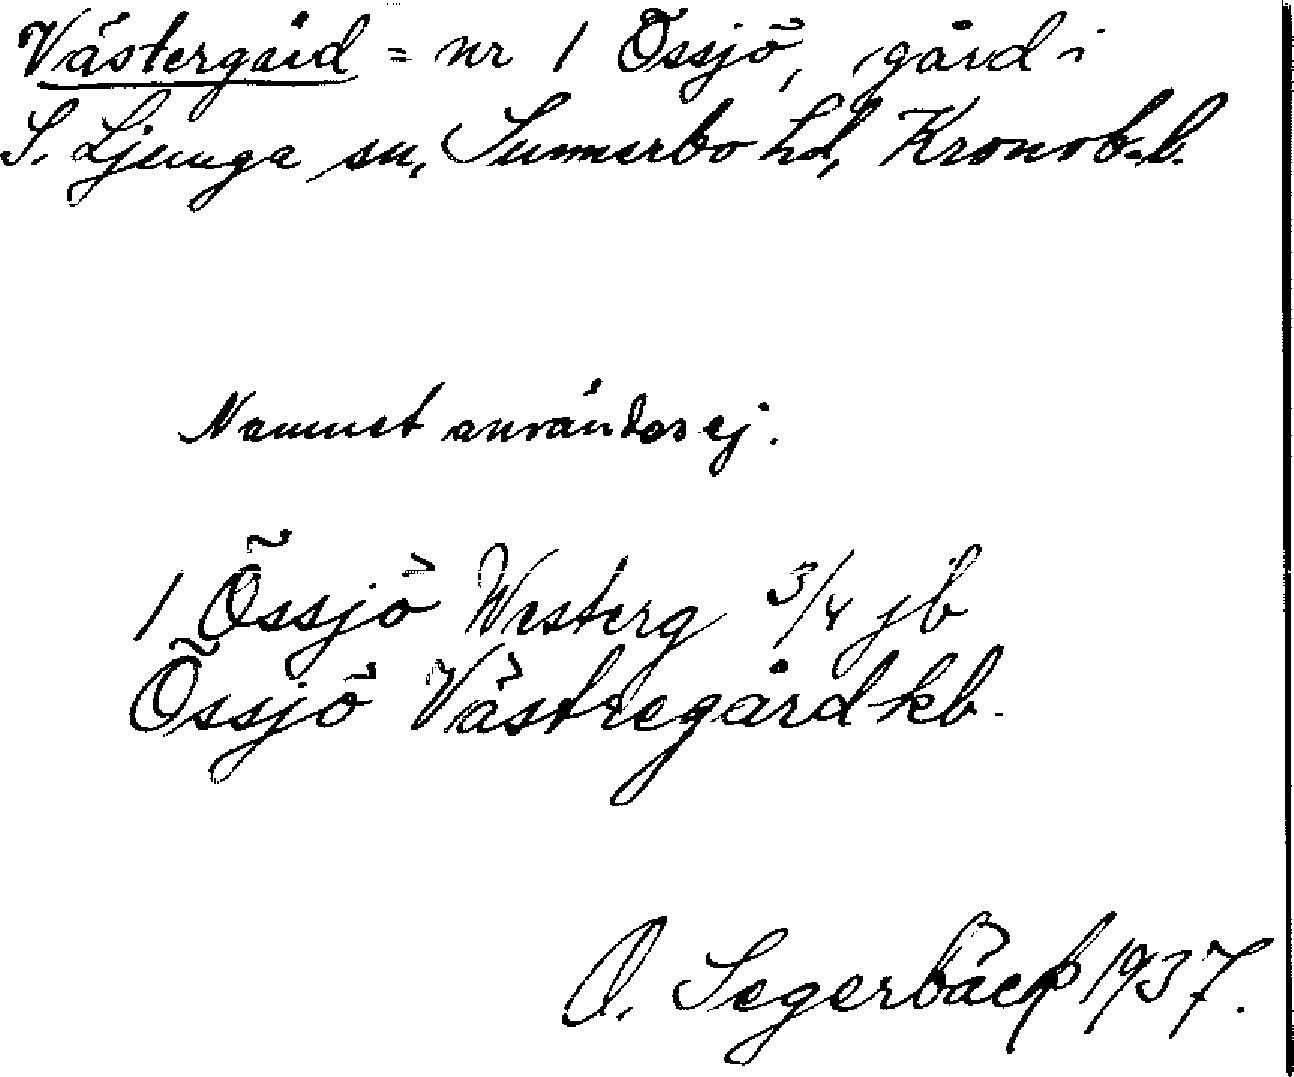 Västergård = nr 1 Össjö, gård i
S. Ljunga sn, Sunnerbo hd, Kronob. l.
Namnet användes ej.
1 Össjö Westerg 3/4 jb
Össjö Västregård kb.
O. Segerbäck 1937.